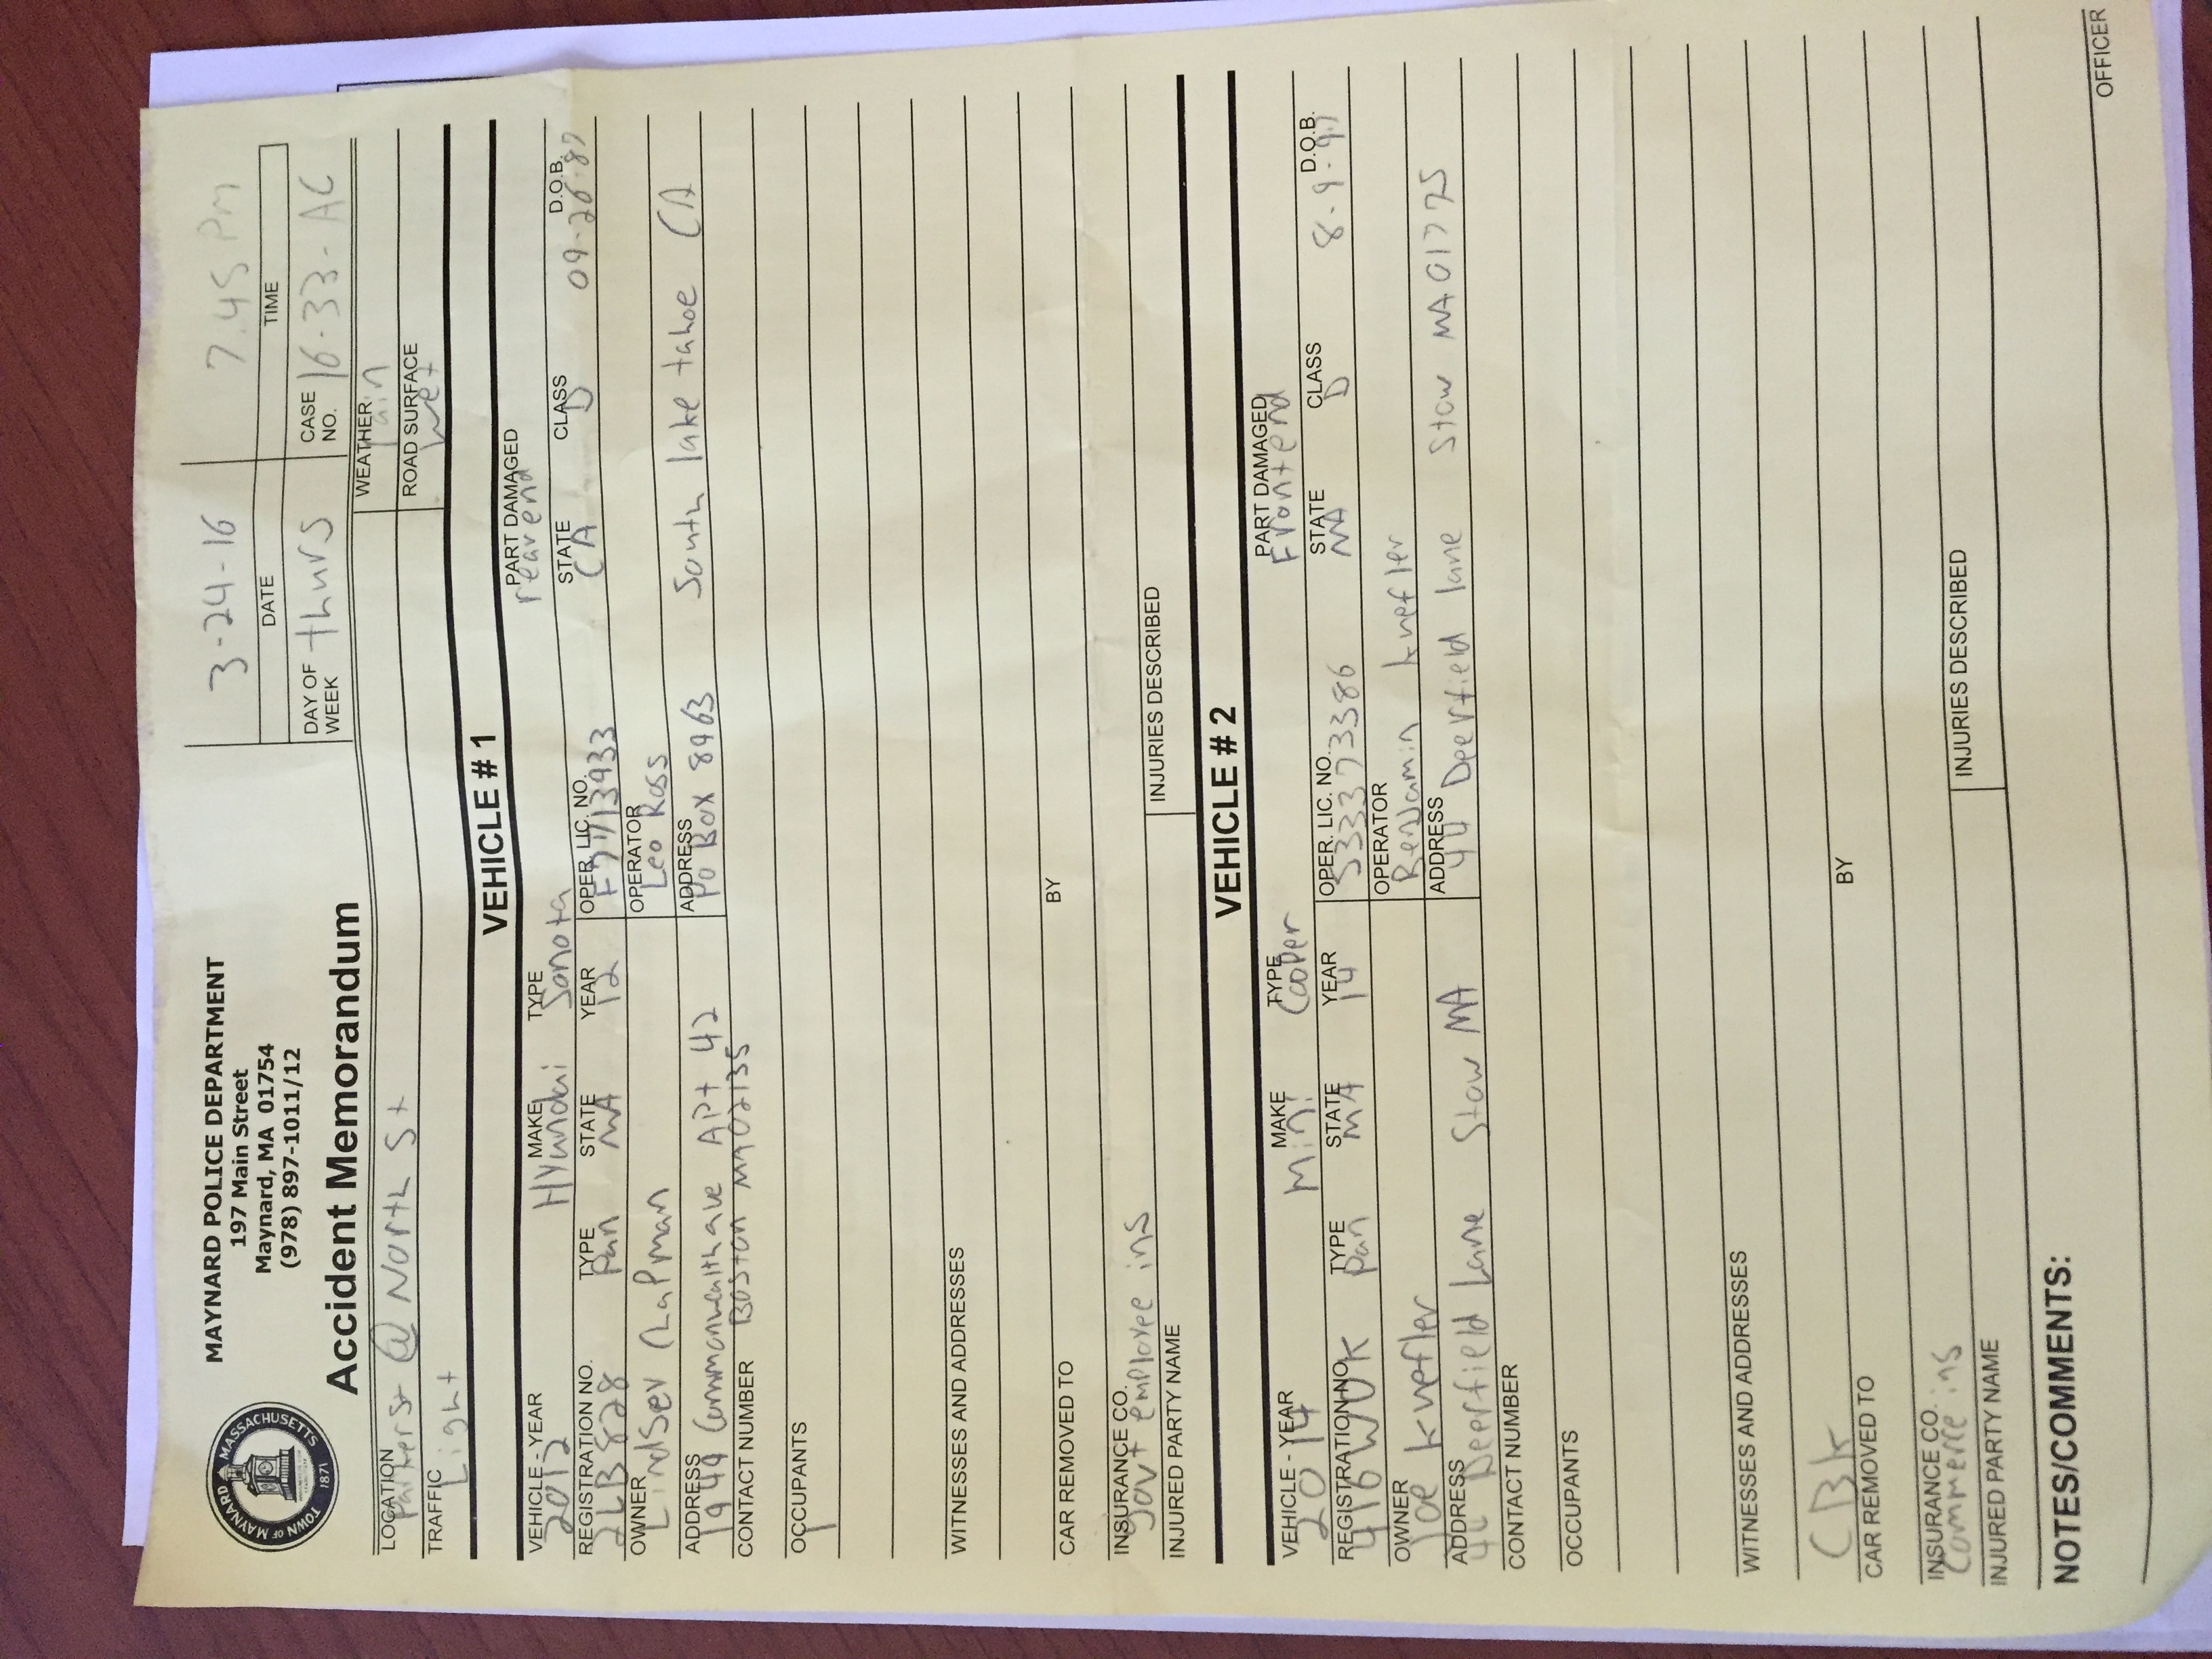 MAYNARD POLICE DEPARTMENT
197 Main Street
Maynard, MA 01754
(978) 897-1011/12
Accident Memorandum
TOWN OF MAYNARD MASSACHUSETTS
1871
3-24-16 7.45 Pm
DATE TIME
DAY OF WEEK thurs CASE NO. 16-33-AC
LOCATION Parker st @ North St WEATHER rain
TRAFFIC Light ROAD SURFACE wet
VEHICLE # 1
VEHICLE - YEAR 2012 MAKE HYundai TYPE Sonota PART DAMAGED rearend
REGISTRATION NO. 2LB 828 TYPE Pan STATE MA YEAR 12 OPER. LIC. NO. STATE CA CLASS D D.O.B. 09-26-87
OWNER LindSey ChaPman OPERATOR Leo Ross
ADDRESS 1949 Commonwealth ave APt 42 ADDRESS Po Box 8963 South lake tahoe CA
CONTACT NUMBER Boston MA 02135
OCCUPANTS 1
WITNESSES AND ADDRESSES
CAR REMOVED TO BY
INSURANCE CO. govt employee ins
INJURED PARTY NAME INJURIES DESCRIBED
VEHICLE # 2
VEHICLE - YEAR 2014 MAKE Mini TYPE Cooper PART DAMAGED Frontend
REGISTRATION NO. 416WUK TYPE pan STATE MA YEAR 14 OPER. LIC. NO. S33373386 STATE MA CLASS D D.O.B. 8-9-97
OWNER Joe knefler OPERATOR Benjamin knefler
ADDRESS 44 Deerfield Lane Stow MA ADDRESS 44 Deerfield lane Stow MA 01775
CONTACT NUMBER
OCCUPANTS
WITNESSES AND ADDRESSES
CBK
CAR REMOVED TO BY
INSURANCE CO. Commerce ins
INJURED PARTY NAME INJURIES DESCRIBED
NOTES/COMMENTS:
OFFICER